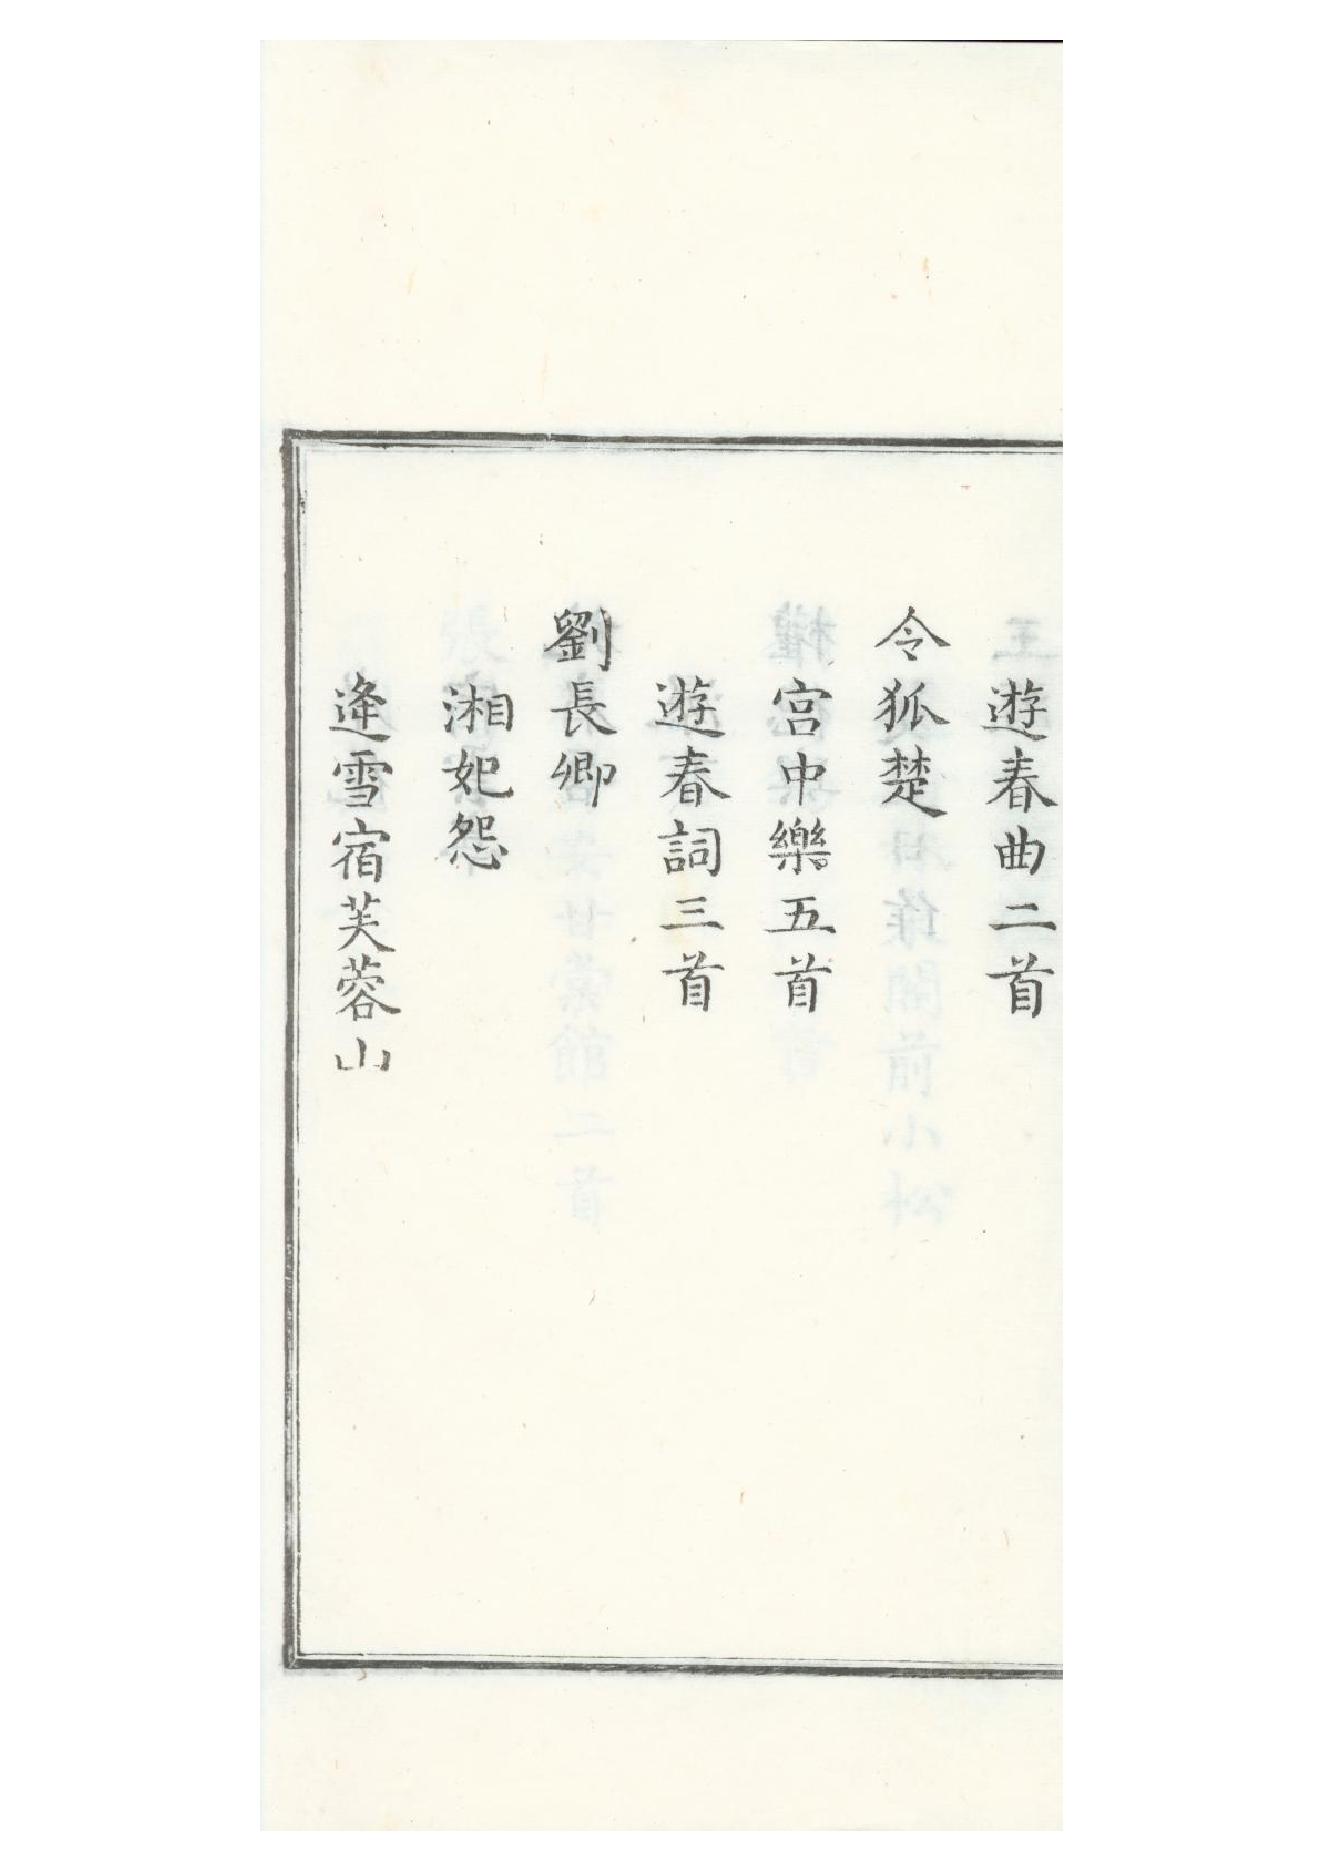 遊春曲二首
令狐楚
宫中樂五首
遊春詞三首
劉長卿
湘妃怨
逢雪宿芙蓉山